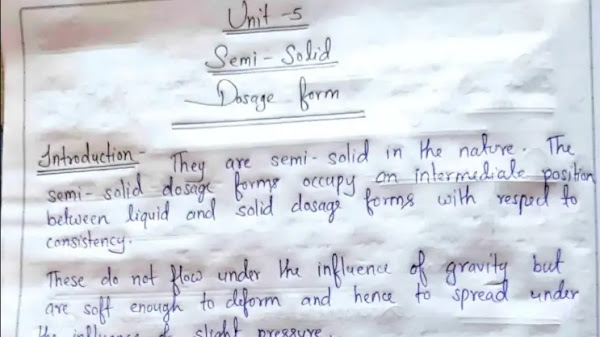 Unit - 5
Semi - Solid
Dosage form
Introduction - They are semi - solid in the nature. The
semi - solid dosage forms occupy an intermediate position
between liquid and solid dosage forms with respect to
consistency.
These do not flow under the influence of gravity but
are soft enough to deform and hence to spread under
the influence of slight pressure.